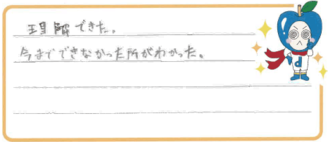 理解できた。
今までできなかった所がわかった。
d